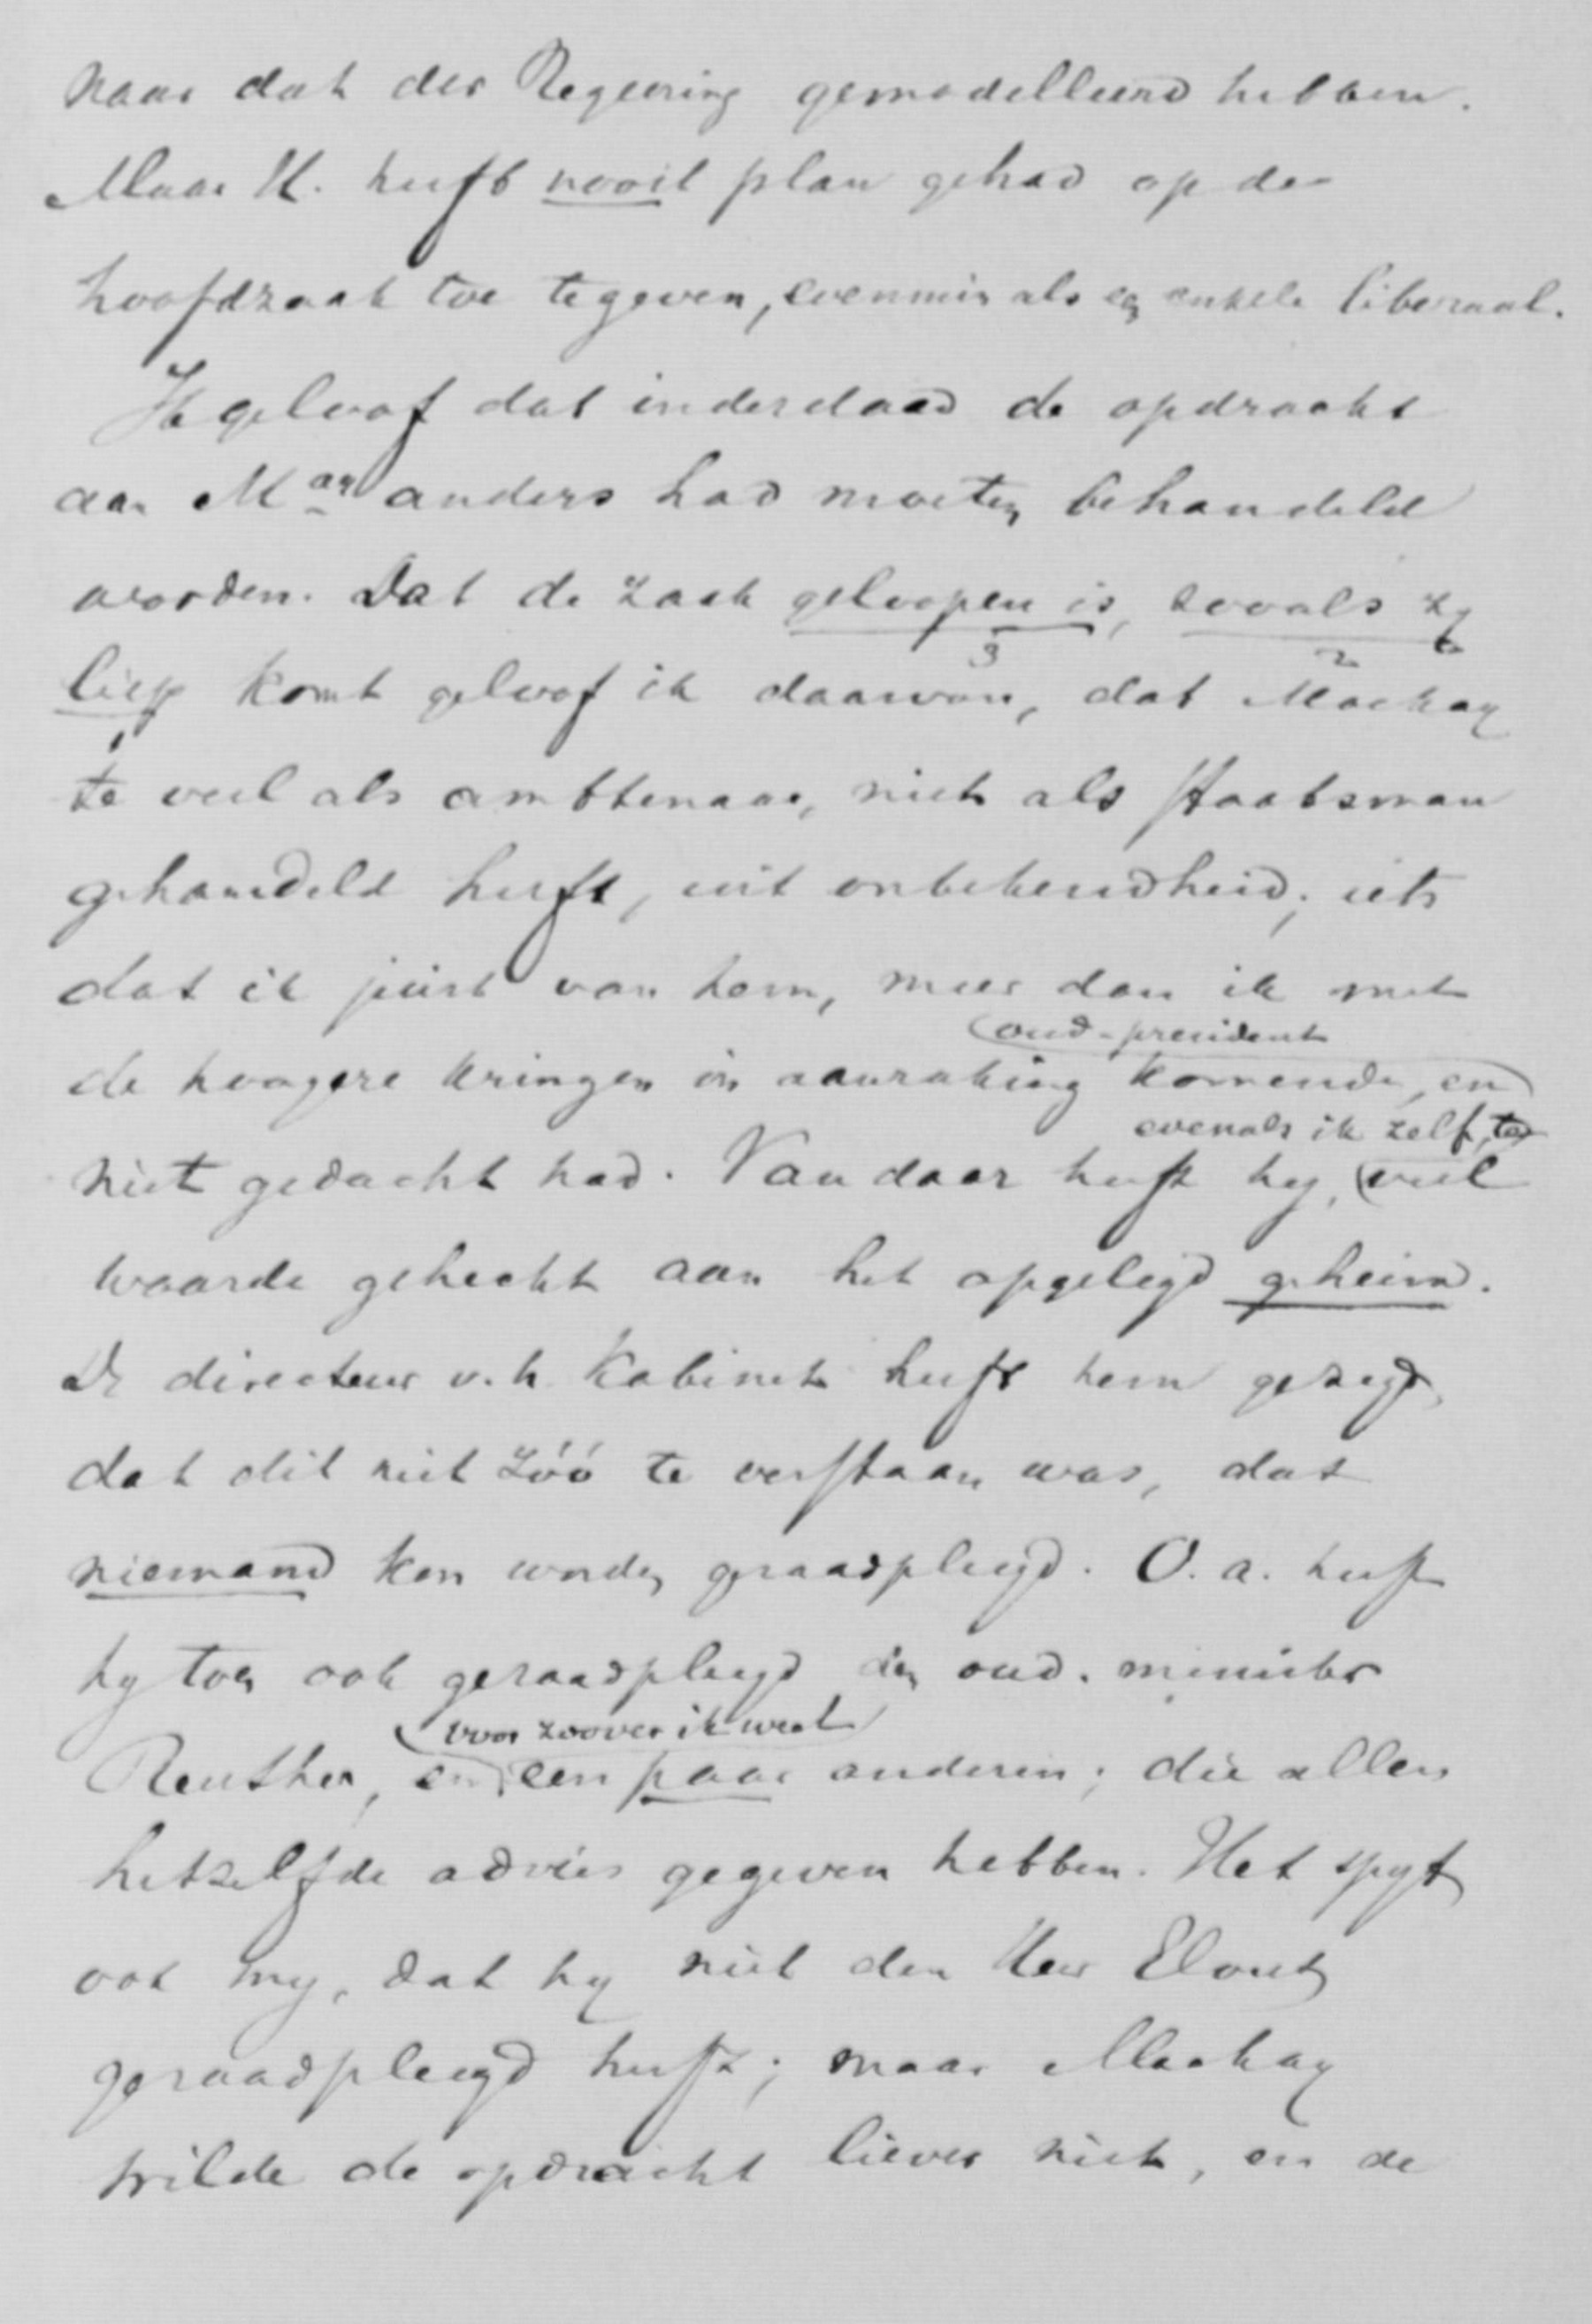 naar dat der Regeering gemodelleerd hebben.
Maar H. heeft nooit plan gehad op de
hoofdzaak toe te geven, evenmin als een enkele liberaal.
Ik geloof dat inderdaad de opdracht
aan M anders had moeten behandeld
worden. Dat de zaak geloopen is, zooals zy
3 2
liep komt geloof ik daarvan, dat Mackay
1
te veel als ambtenaar, niet als Staatsman
gehandeld heeft, uit onbekendheid; iets
dat ik juist van hem, meer dan ik met
(oud-president
de hoogere kringen in aanraking komende, en
evenals ik zelf, te
niet gedacht had. Van daar heeft hy, (veel
waarde gehecht aan het opgelegd geheim.
De directeur v. h. Kabinet heeft hem gezegd,
dat dit niet zóó te verstaan was, dat
niemand kon worden geraadpleegd. O. a. heeft
hy toen ook geraadpleegd den oud. minister
(voor zoover ik weet)
Reuther, en een paar anderen; die allen
hetzelfde advies gegeven hebben. Het spyt
ook my, dat hy niet den Heer Elout
geraadpleegd heeft; maar Mackay
wilde de opdracht liever niet, en de